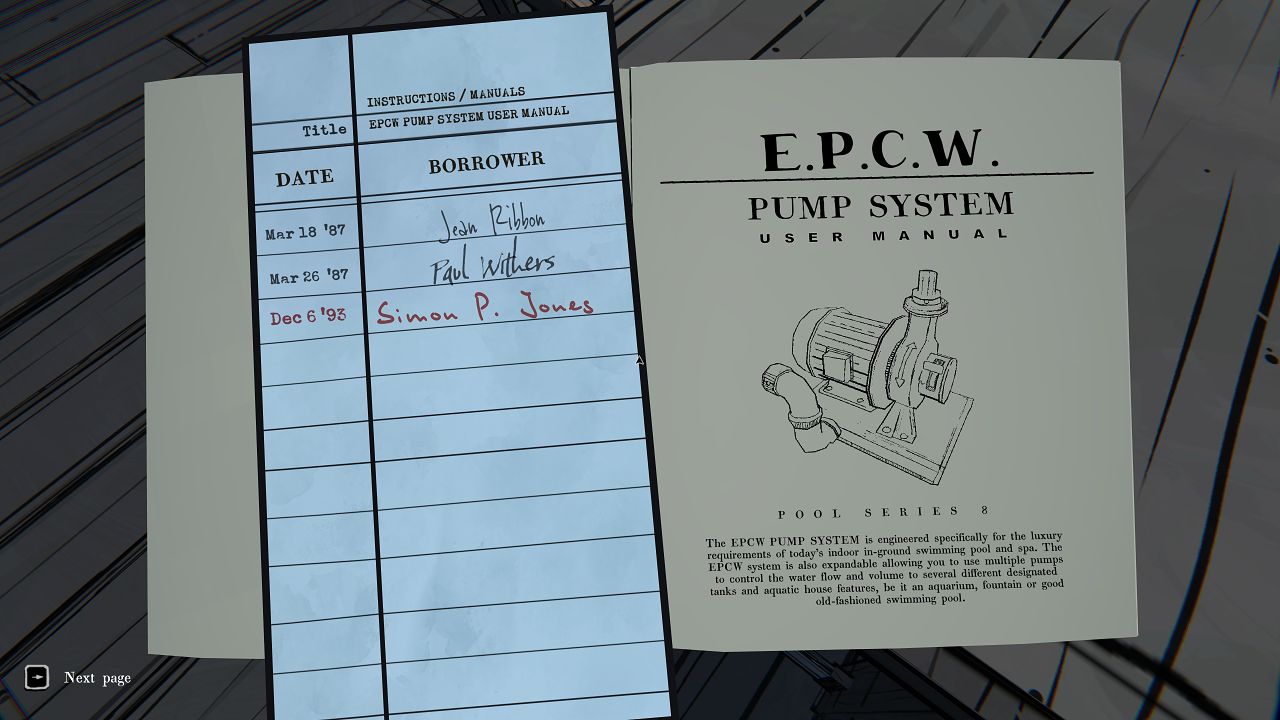 INSTRUCTIONS / MANUALS
Title EPCW PUMP SYSTEM USER MANUAL
DATE BORROWER
Mar 18 '87 Jean Ribbon
Mar 26 '87 Paul Withers
Dec 6 '93 Simon P. Jones
E.P.C.W.
PUMP SYSTEM
USER MANUAL
POOL SERIES 8
The EPCW PUMP SYSTEM is engineered specifically for the luxury
requirements of today's indoor in-ground swimming pool and spa. The
EPCW system is also expandable allowing you to use multiple pumps
to control the water flow and volume to several different designated
tanks and aquatic house features, be it an aquarium, fountain or good
old-fashioned swimming pool.
Next page